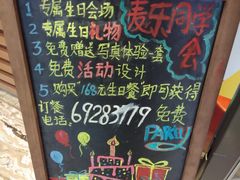 1 专属生日会场
2 专属生日礼物
麦乐同学会
3 免费赠送写真体验一套
4 免费活动设计
5 购买168元生日餐即可获得
订餐电话: 69283779 免费
PARTY